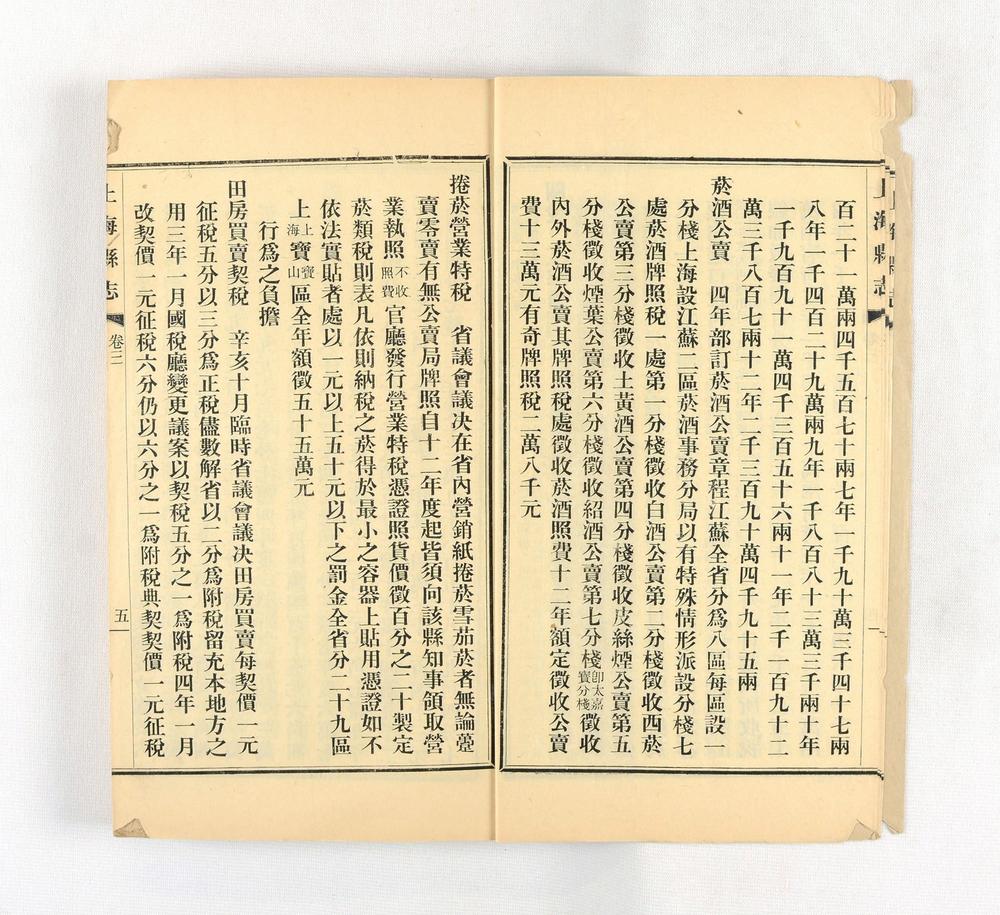 百二十一萬兩四千五百七十兩七年一千九十萬三千四十七兩
八年一千四百二十九萬兩九年一千八百八十三萬三千兩十年
一千九百九十一萬四千三百五十六兩十一年二千一百九十二
萬三千八百七兩十二年二千三百九十萬四千九十五兩
菸酒公賣　四年部訂菸酒公賣章程江蘇全省分爲八區每區設一
分棧上海設江蘇二區菸酒事務分局以有特殊情形派設分棧七
處菸酒牌照稅一處第一分棧徵收白酒公賣第二分棧徵收西菸
公賣第三分棧徵收土黃酒公賣第四分棧徵收皮絲煙公賣第五
分棧徵收煙葉公賣第六分棧徵收紹酒公賣第七分棧卽太嘉寶分棧徵收
內外菸酒公賣其牌照稅處徵收菸酒照費十二年額定徵收公賣
費十三萬元有奇牌照稅二萬八千元
捲菸營業特稅　省議會議决在省內營銷紙捲菸雪茄菸者無論躉
賣零賣有無公賣局牌照自十二年度起皆須向該縣知事領取營
業執照不收照費官廳發行營業特稅憑證照貨價徵百分之二十製定
菸類稅則表凡依則納稅之菸得於最小之容器上貼用憑證如不
依法實貼者處以一元以上五十元以下之罰金全省分二十九區
上海上寶寶山區全年額徵五十五萬元
行爲之負擔
田房買賣契稅　辛亥十月臨時省議會議决田房買賣每契價一元
征稅五分以三分爲正稅儘數解省以二分爲附稅留充本地方之
用三年一月國稅廳變更議案以契稅五分之一爲附稅四年一月
改契價一元征稅六分仍以六分之一爲附稅典契契價一元征稅
上海縣志
卷三
五